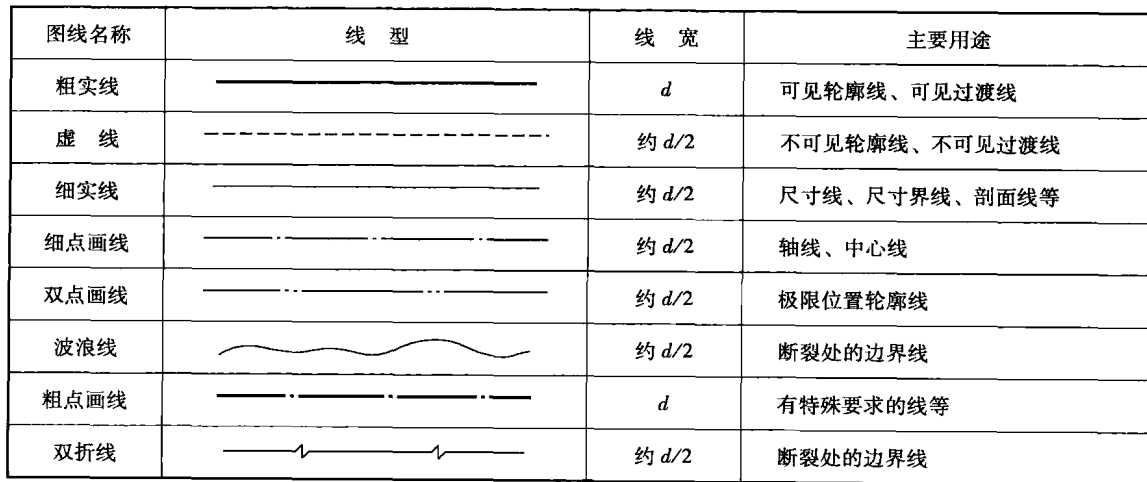 图线名称 线 型 线 宽 主要用途
粗实线 d 可见轮廓线、可见过渡线
虚 线 约 d/2 不可见轮廓线、不可见过渡线
细实线 约 d/2 尺寸线、尺寸界线、剖面线等
细点画线 约 d/2 轴线、中心线
双点画线 约 d/2 极限位置轮廓线
波浪线 约 d/2 断裂处的边界线
粗点画线 d 有特殊要求的线等
双折线 约 d/2 断裂处的边界线